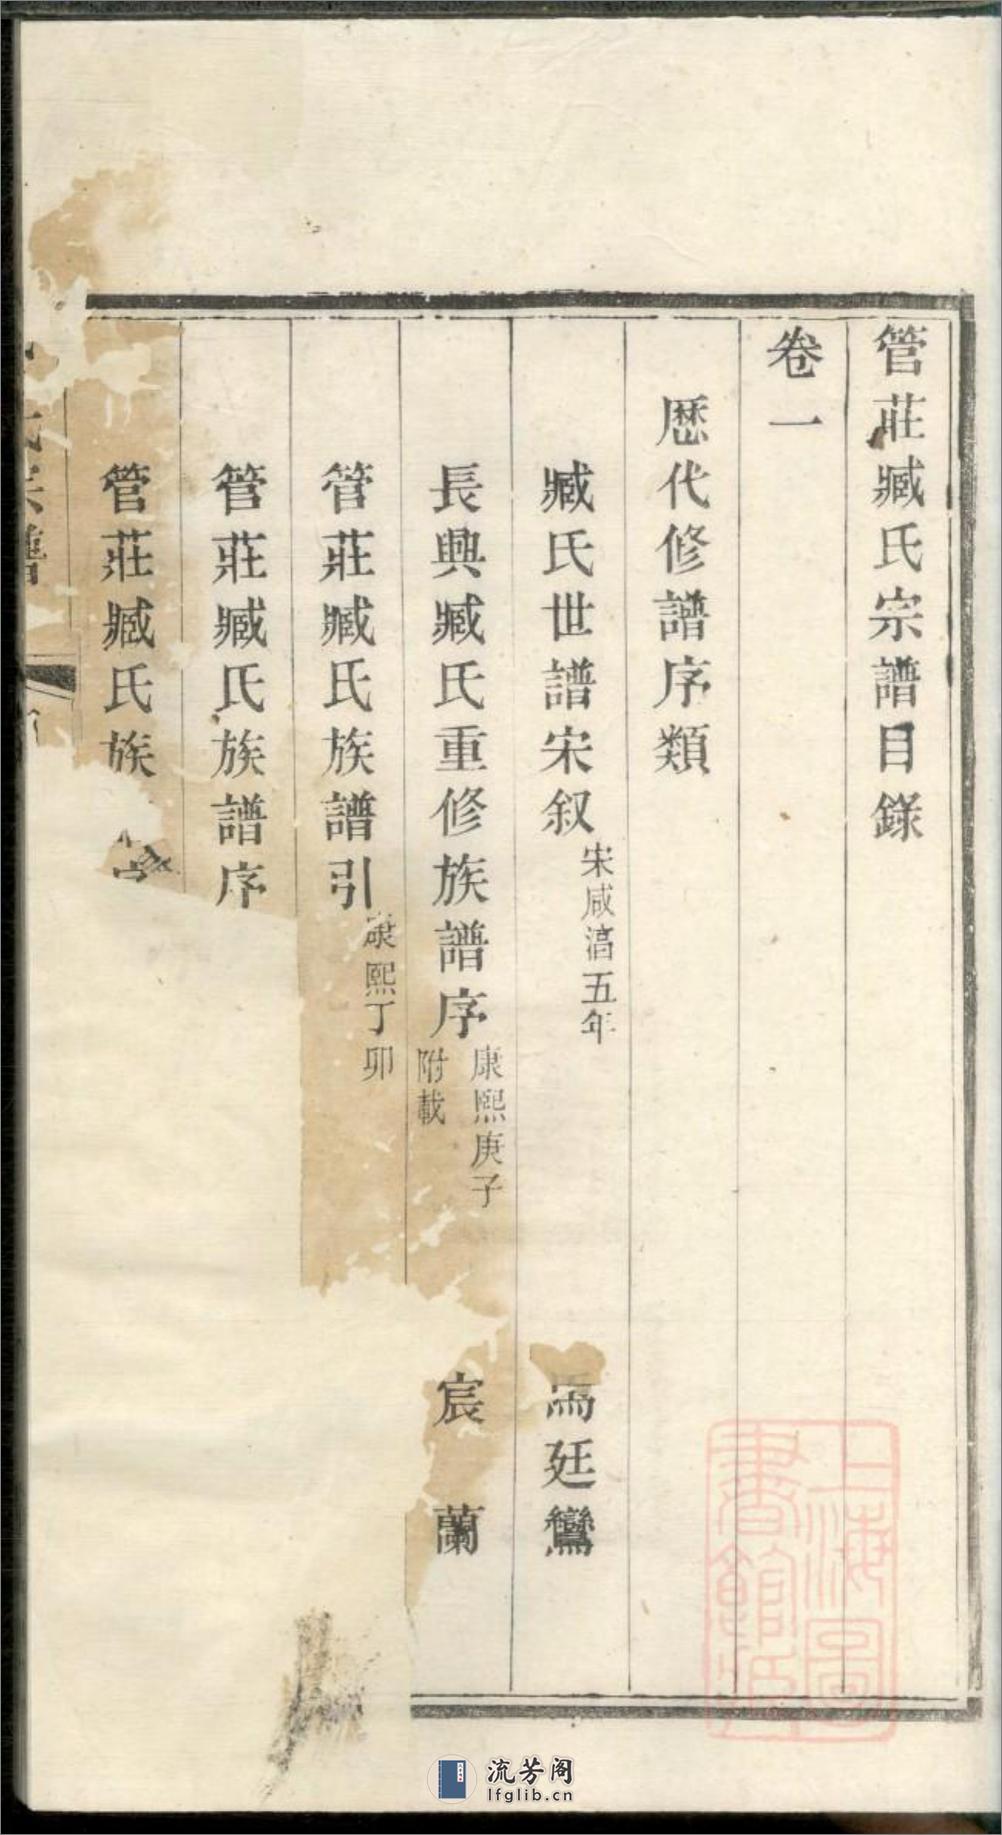 管莊臧氏宗譜目錄
卷一
歷代修譜序類
臧氏世譜宋叙 宋咸淳五年 馬廷鸞
長興臧氏重修族譜序 康熙庚子 附載 宸蘭
管莊臧氏族譜引 康熙丁卯
管莊臧氏族譜序
管莊臧氏族
氏宗譜
上海圖
書館藏
流芳阁
lfglib.cn